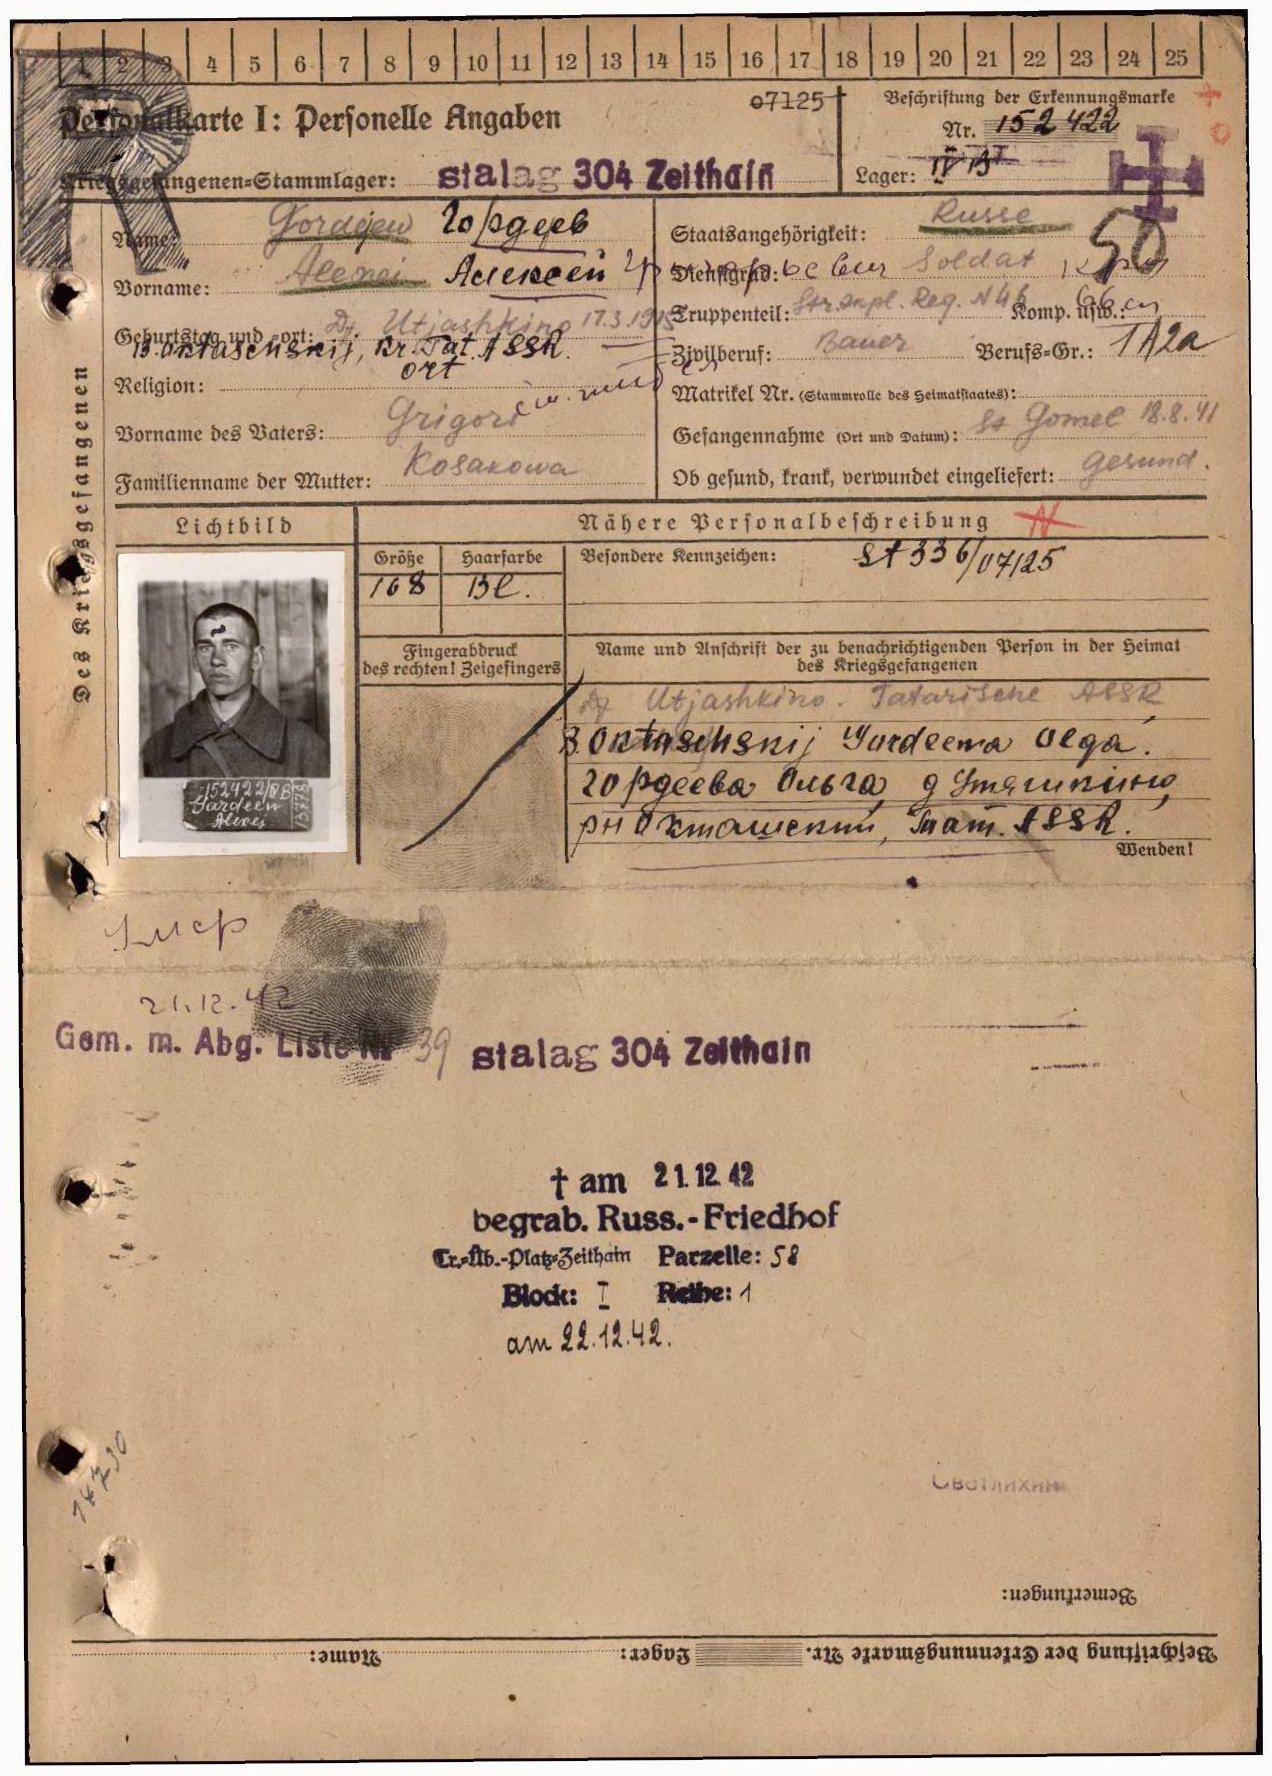 1 2 3 4 5 6 7 8 9 10 11 12 13 14 15 16 17 18 19 20 21 22 23 24 25
Personalkarte I: Personelle Angaben
07125
Beschriftung der Erkennungsmarke
Nr. 152422
Kriegsgefangenen-Stammlager: Stalag 304 Zeithain
Lager: IV B
Des Kriegsgefangenen
Name: Gordejew Гордеев
Vorname: Alexei Алексей
Geburtstag und -ort: Df. Utjashkino 17.3.19
B. Oktaschskij, Kr. Tat. ASSR.
ort
Religion:
Vorname des Vaters: Grigori
Familienname der Mutter: Kosakowa
Staatsangehörigkeit: Russe
50
Dienstgrad: Soldat
Truppenteil: Str. Reg. N 46 Komp. usw.:
Zivilberuf: Bauer Berufs-Gr.: 1A2a
Matrikel Nr. (Stammrolle des Heimatstaates):
Gefangennahme (Ort und Datum): St Gomel 18.8.41
Ob gesund, krank, verwundet eingeliefert: Gesund.
Lichtbild
Nähere Personalbeschreibung N
Größe Haarfarbe Besondere Kennzeichen: St 336/07125
168 Bl.
Fingerabdruck
des rechten! Zeigefingers
Name und Anschrift der zu benachrichtigenden Person in der Heimat
des Kriegsgefangenen
Df Utjashkino. Tatarische ASSR
B. Oktaschskij Gordeewa Olga.
Гордеева Ольга, д Утяшкино,
рн Окташский, Тат. ASSR.
Wenden!
152422/IVB
Gardeew
Alexej
Умер
21.12.42
Gem. m. Abg. Liste Nr 39 Stalag 304 Zeithain
† am 21.12.42
begrab. Russ.-Friedhof
Tr.-Üb.-Platz-Zeithain Parzelle: 58
Block: I Reihe: 1
am 22.12.42.
Светлихин
Bemerkungen:
Beschriftung der Erkennungsmarke Nr. Lager: Name: